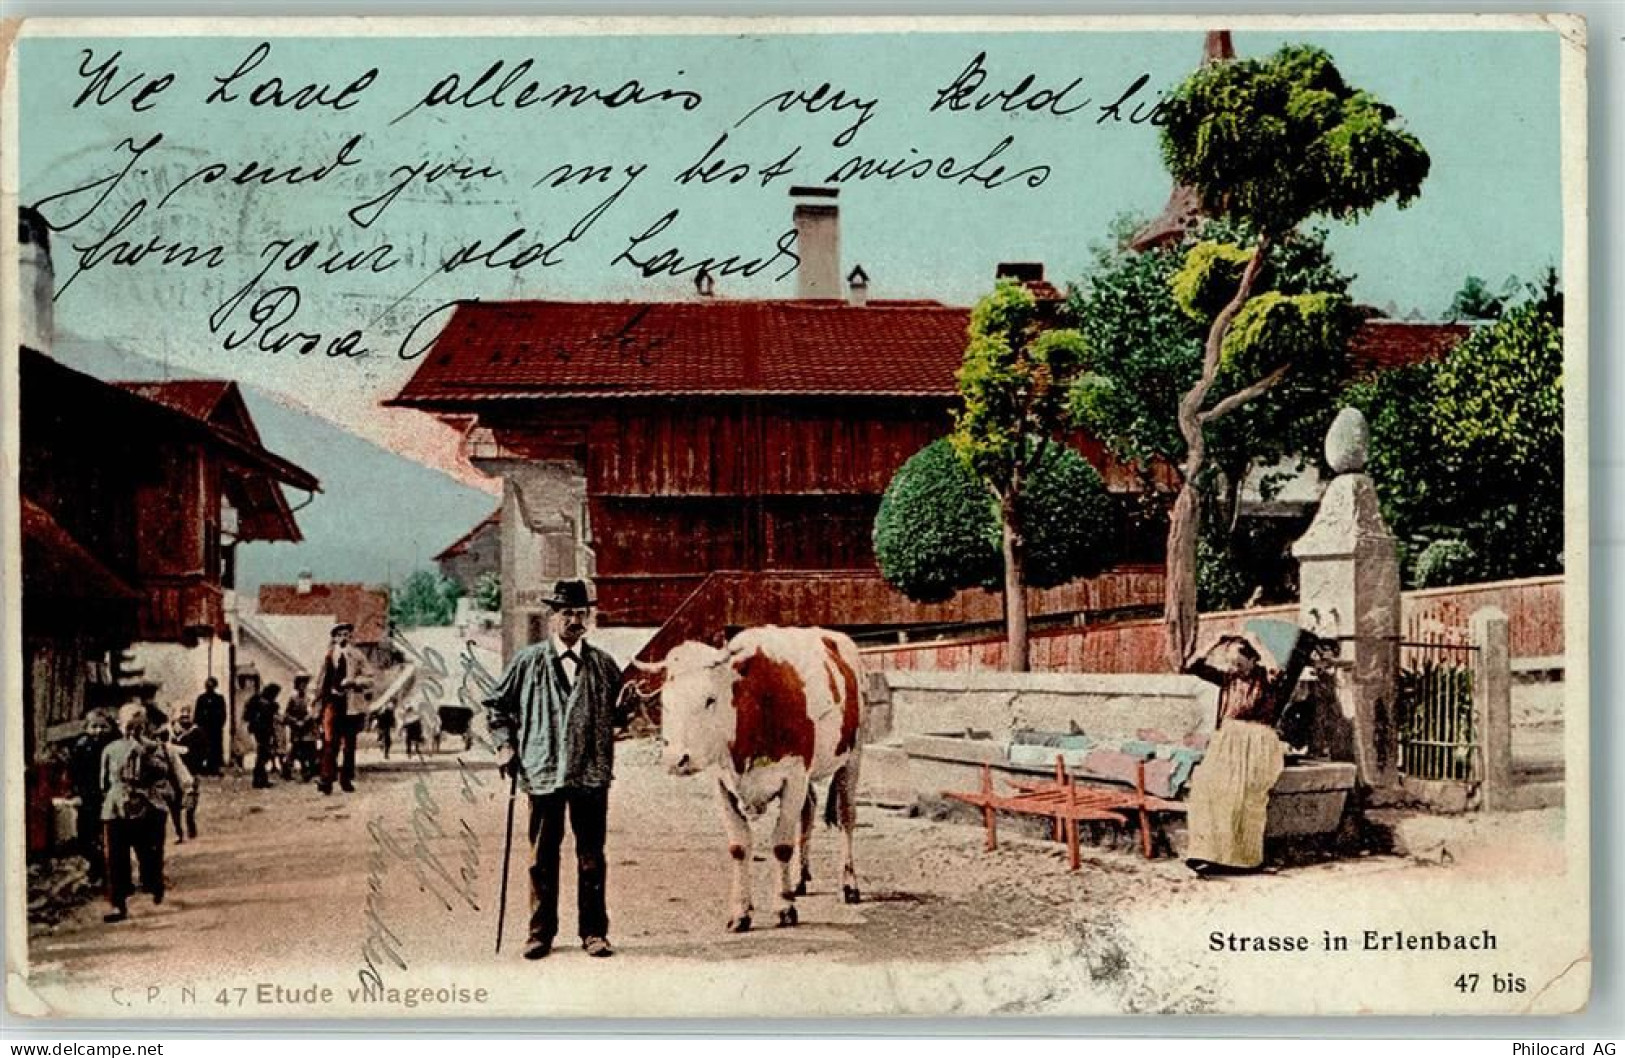 We have allemais very kold hi
I send you my best wisches
from your old Land
Rosa
Strasse in Erlenbach
47 bis
C. P. N. 47 Etude villageoise
Philocard AG